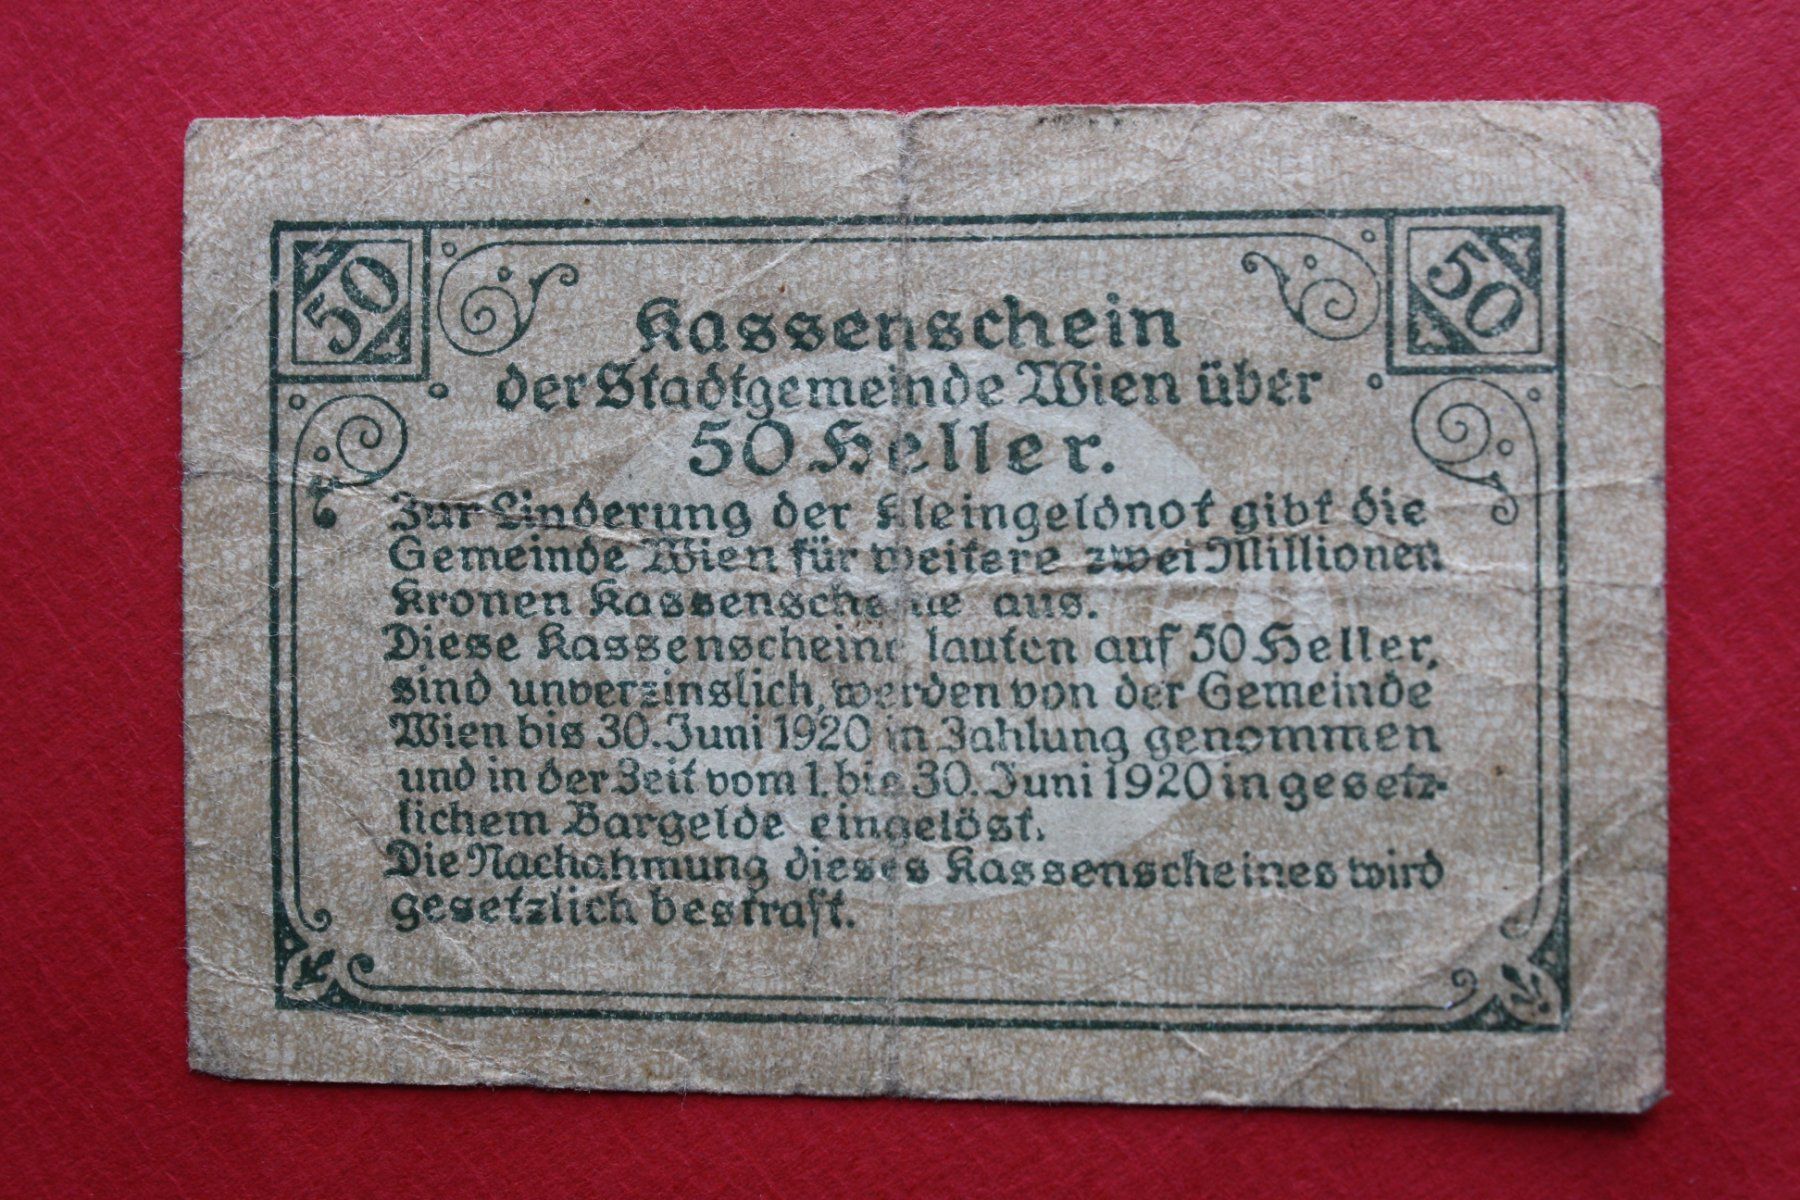 50
50
Kassenschein
der Stadtgemeinde Wien über
50 Heller.
Zur Linderung der Kleingeldnot gibt die
Gemeinde Wien für weitere zwei Millionen
Kronen Kassenscheine aus.
Diese Kassenscheine lauten auf 50 Heller,
sind unverzinslich, werden von der Gemeinde
Wien bis 30. Juni 1920 in Zahlung genommen
und in der Zeit vom 1. bis 30. Juni 1920 in gesetz-
lichem Bargelde eingelöst.
Die Nachahmung dieses Kassenscheines wird
gesetzlich bestraft.